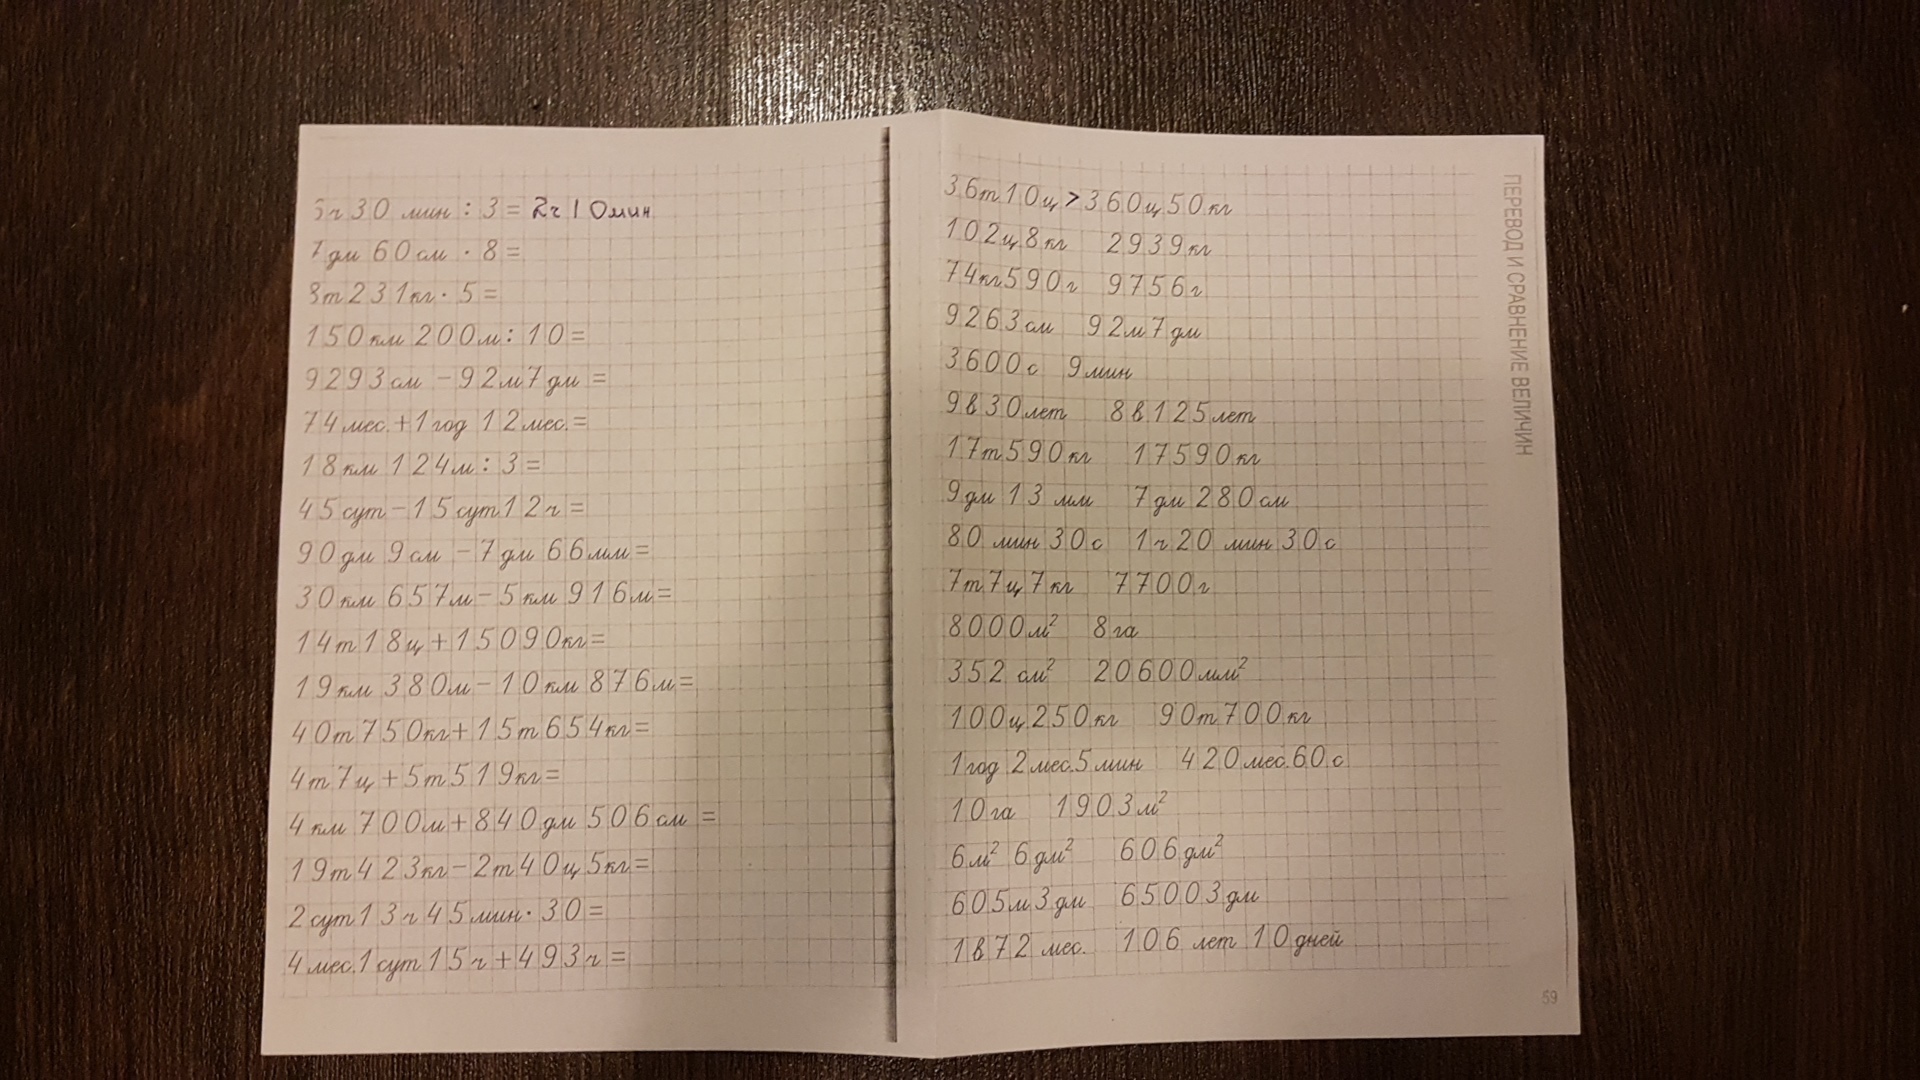 ч 30 мин : 3 = 2ч 10мин
7 дм 60 см · 8 =
8т 231кг · 5 =
150км 200м : 10 =
9293см - 92м 7дм =
74мес. + 1год 12мес. =
18км 124м : 3 =
45сут - 15сут 12ч =
90дм 9см - 7дм 66мм =
30км 657м - 5км 916м =
14т 18ц + 15090кг =
19км 380м - 10км 876м =
40т 750кг + 15т 654кг =
4т 7ц + 5т 519кг =
4км 700м + 840дм 506см =
19т 423кг - 2т 40ц 5кг =
2сут 13ч 45мин · 30 =
4мес. 1сут 15ч + 493ч =
36т 10ц > 360ц 50кг
102ц 8кг 2939кг
74кг 590г 9756г
9263см 92м 7дм
3600с 9мин
9в 30лет 8в 125лет
17т 590кг 17590кг
9дм 13мм 7дм 280см
80 мин 30с 1ч 20 мин 30с
7т 7ц 7кг 7700г
8000м² 8га
352 см² 20600мм²
100ц 250кг 90т 700кг
1год 2мес. 5мин 420мес. 60с
10га 1903м²
6м² 6дм² 606дм²
605м 3дм 65003дм
1в 72 мес. 106 лет 10дней
ПЕРЕВОД И СРАВНЕНИЕ ВЕЛИЧИН
59